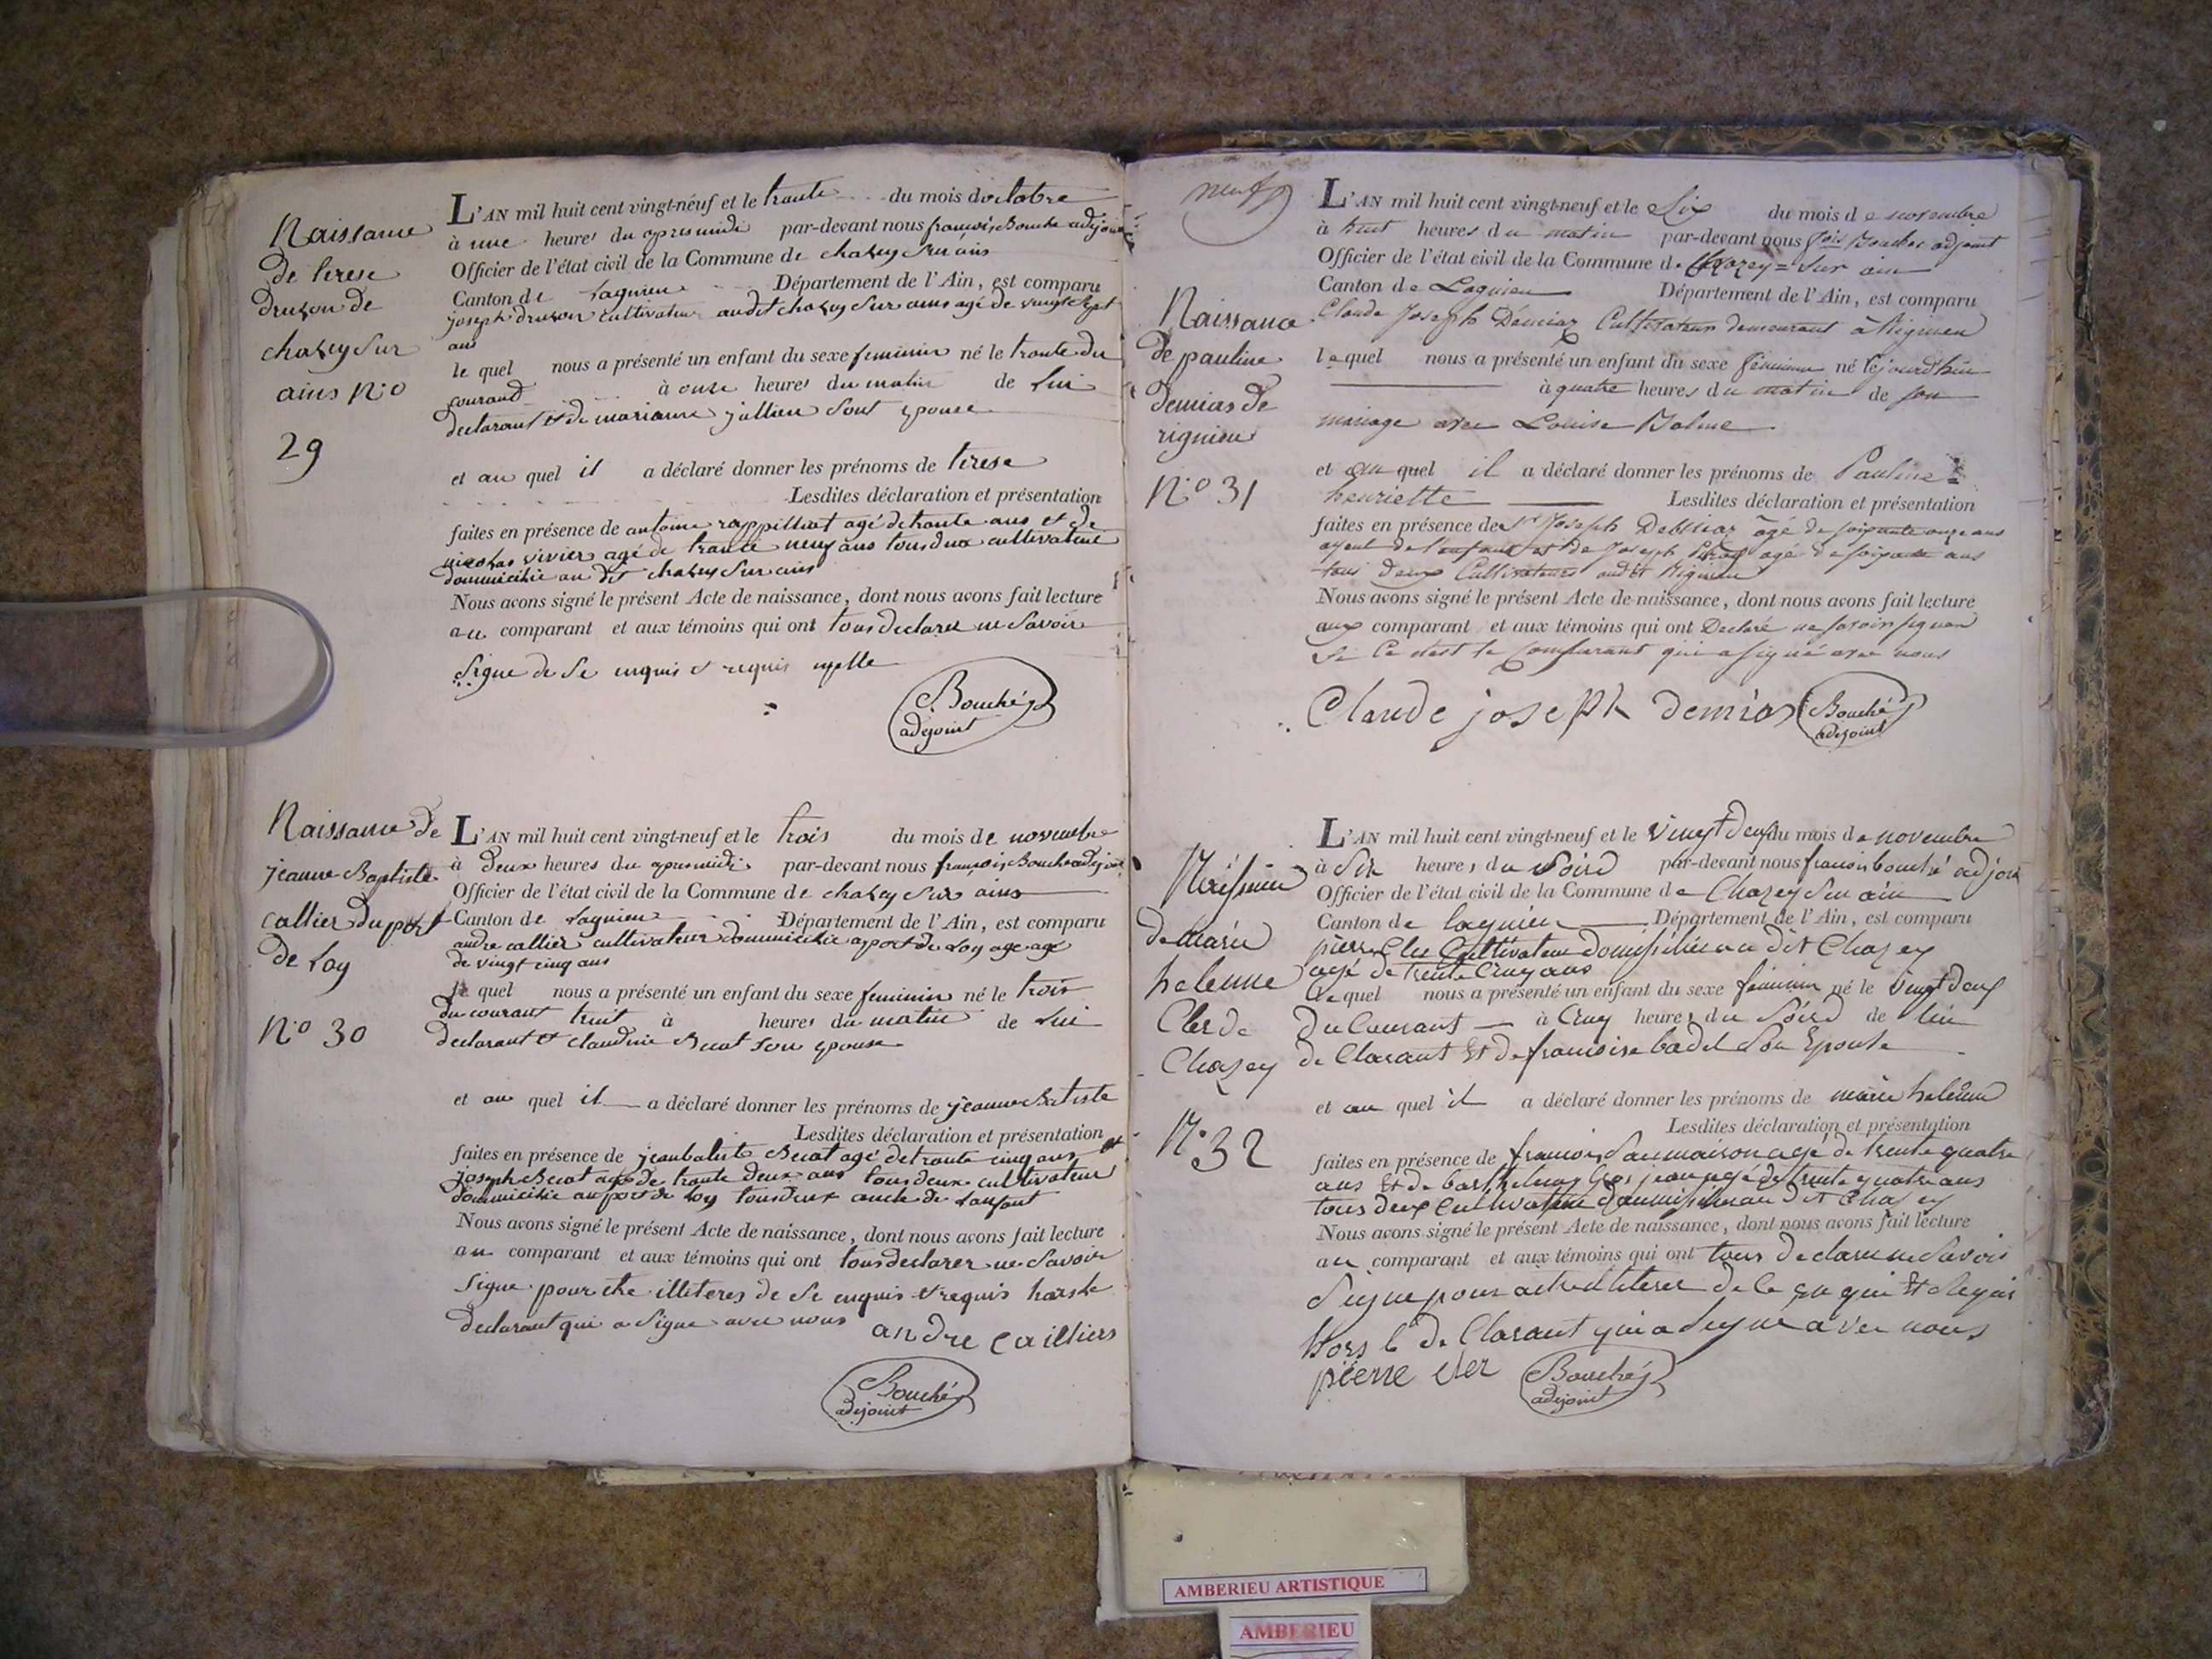 Naissance
de terese
druzon de
chazey sur
ains N:o
29
L'AN mil huit cent vingt-neuf et le trante du mois doctobre
à une heures du apres midi par-devant nous françois Bouché adejoint
Officier de l'état civil de la Commune de chazey sur ains
Canton de lagnieu Département de l'Ain, est comparu
joseph druzon cultivateur audit chazey sur ains agé de vingt sept
ans
le quel nous a présenté un enfant du sexe feminin né le trante du
courand à onze heures du matin de lui
declarant et de marianne jullien sont epouse
et au quel il a déclaré donner les prénoms de terese
Lesdites déclaration et présentation
faites en présence de antoine rappilliat agé de trante ans et de
nicolas vivier agé de trante neuf ans tous deux cultivateur
dommicilie au dit chazey sur ains
Nous avons signé le présent Acte de naissance, dont nous avons fait lecture
au comparant et aux témoins qui ont tous declarer ne savoir
signe de se enquis et requis
Bouché
adejoint
Naissance de
jeanne Baptiste
callier du port
de Loy
N:o 30
L'AN mil huit cent vingt-neuf et le trois du mois de novembre
à deux heures du apres midi par-devant nous françois Bouché adejoint
Officier de l'état civil de la Commune de chazey sur ains
Canton de lagnieu Département de l'Ain, est comparu
andre callier cultivateur dommicilie a port de Loy age agé
de vingt cinq ans
le quel nous a présenté un enfant du sexe feminin né le trois
du courant huit à heures du matin de lui
declarant et claudine Bicat son epouse
et au quel il a déclaré donner les prénoms de jeanne Batiste
Lesdites déclaration et présentation
faites en présence de jean batiste Bicat agé de trante cinq ans et
joseph Bicat agé de trante deux ans tous deux cultivateur
dommicilie au port de Loy tous deux oncle de lanfant
Nous avons signé le présent Acte de naissance, dont nous avons fait lecture
au comparant et aux témoins qui ont tous declarer ne savoir
signe pour etre illiteres de se enquis et requis hors le
declarant qui a signe avec nous andre cailliers
Bouché
adejoint
neuf
Naissance
de pauline
demias de
rignieu
N:o 31
L'AN mil huit cent vingt-neuf et le Six du mois de novembre
à huit heures du matin par-devant nous fois Bouché adjoint
Officier de l'état civil de la Commune de Chazey = sur ain
Canton de Lagnieu Département de l'Ain, est comparu
Claude Joseph Demiaz Cultivateur demeurant à Rignieu
lequel nous a présenté un enfant du sexe féminin né cejourd'hui
à quatre heures du matin de son
mariage avec Louise Balme
et au quel il a déclaré donner les prénoms de Pauline
henriette Lesdites déclaration et présentation
faites en présence de Joseph Demiaz âgé de soixante onze ans
ayeul de l'enfant et de Joseph agé de soixante ans
tous deux Cultivateurs audit Rignieu
Nous avons signé le présent Acte de naissance, dont nous avons fait lecture
aux comparant et aux témoins qui ont Déclaré ne savoir signer
Si Ce n'est le Comparant qui a signé avec nous
Claude joseph demias Bouché
adejoint
Naissance
de marie
helenne
Cler de
Chazey
N:o 32
L'AN mil huit cent vingt-neuf et le vingt deux du mois de novembre
à six heures du soird par-devant nous francois bouché adjoin
Officier de l'état civil de la Commune de Chazey sur ain
Canton de lagnieu Département de l'Ain, est comparu
pierre Cler Cultivateur domissilié au dit Chazey
agé de trente Cinq ans
le quel nous a présenté un enfant du sexe feminin né le vingt deux
du Courant à Cinq heures du soird de lui
de Clarant Et de francoise badel son Epouse
et au quel il a déclaré donner les prénoms de marie helenne
Lesdites déclaration et présentation
faites en présence de francois Saumaison agé de trente quatre
ans Et de barthelemy Gros jean agé de trente quatre ans
tous deux Cultivateur domissilié au dit Chazey
Nous avons signé le présent Acte de naissance, dont nous avons fait lecture
au comparant et aux témoins qui ont tous declare ne savoir
signe pour de Ce en qui Et Requis
hors le de Clarant qui a signe avec nous
pierre cler Bouché
adejoint
AMBERIEU ARTISTIQUE
AMBERIEU